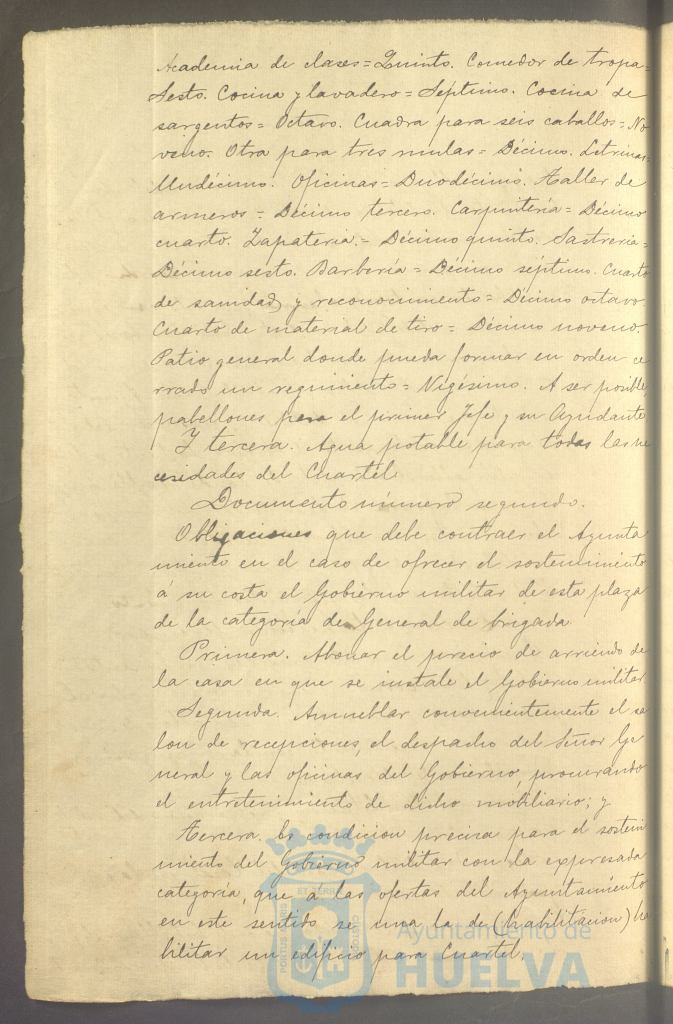 Academia de clases = Quinto. Comedor de tropa =
Sesto. Cocina y lavadero = Septimo. Cocina de
sargentos = Octavo. Cuadra para seis caballos = No
veno. Otra para tres mulas = Décimo. Letrinas =
Undécimo. Oficinas = Duodécimo. Taller de
armeros = Décimo tercero. Carpintería = Décimo
cuarto. Zapateria. = Décimo quinto. Sastreria =
Décimo sesto. Barbería = Décimo séptimo. Cuarto
de sanidad y reconocimiento = Décimo octavo
Cuarto de material de tiro = Décimo noveno.
Patio general donde pueda formar en orden ce
rrado un regimiento = Vigésimo. A ser posible,
pabellones para el primer Jefe y su Ayudante
Y tercera. Agua potable para todas las ne
cesidades del Cuartel
Documento número segundo.
Obligaciones que debe contraer el Ayunta
miento en el caso de ofrecer el sostenimiento
á su costa el Gobierno militar de esta plaza
de la categoría de General de brigada
Primera. Abonar el precio de arriendo de
la casa en que se instale el Gobierno militar
Segunda. Amueblar convenientemente el sa
lon de recepciones, el despacho del Señor Ge
neral y las oficinas del Gobierno, procurando
el entretenimiento de dicho mobiliario; y
Tercera. Es condicion precisa para el sosteni
miento del Gobierno militar con la expresada
categoría, que á las ofertas del Ayuntamiento
en este sentido se una la de (habilitacion) ha
bilitar un edificio para Cuartel.
Ayuntamiento de
HUELVA